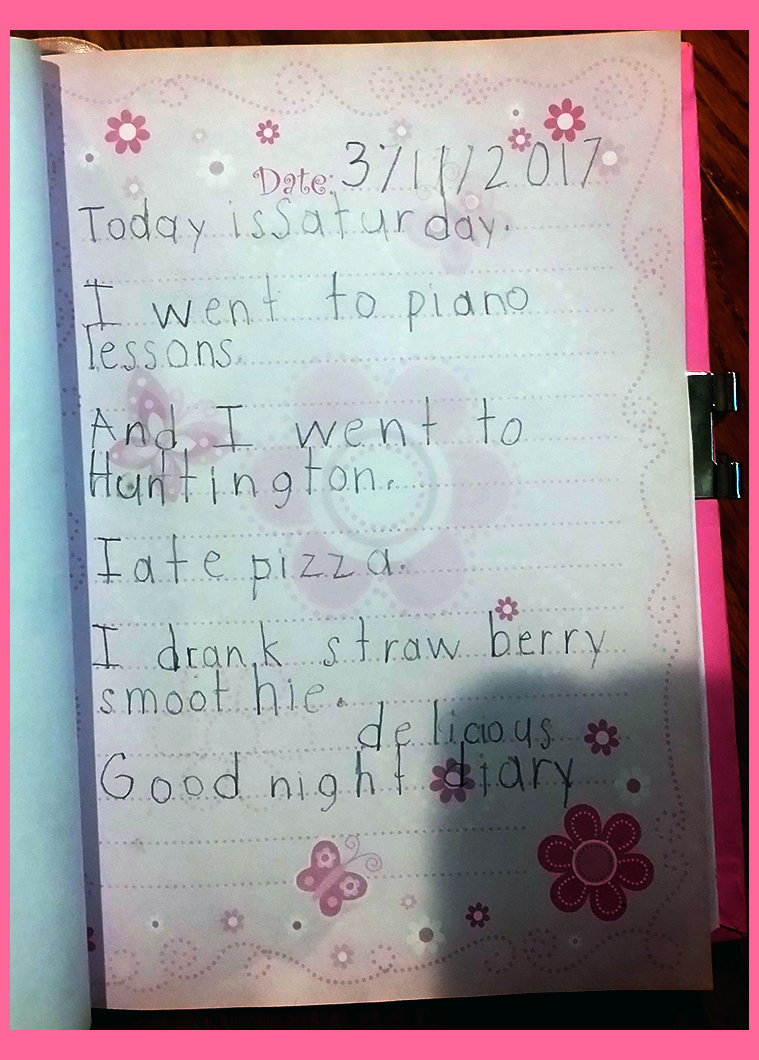 Date: 3/11/2017
Today is Saturday.
I went to piano
lessons.
And I went to
Huntington.
I ate pizza.
I drank straw berry
smoothie.
delicious
Good night diary